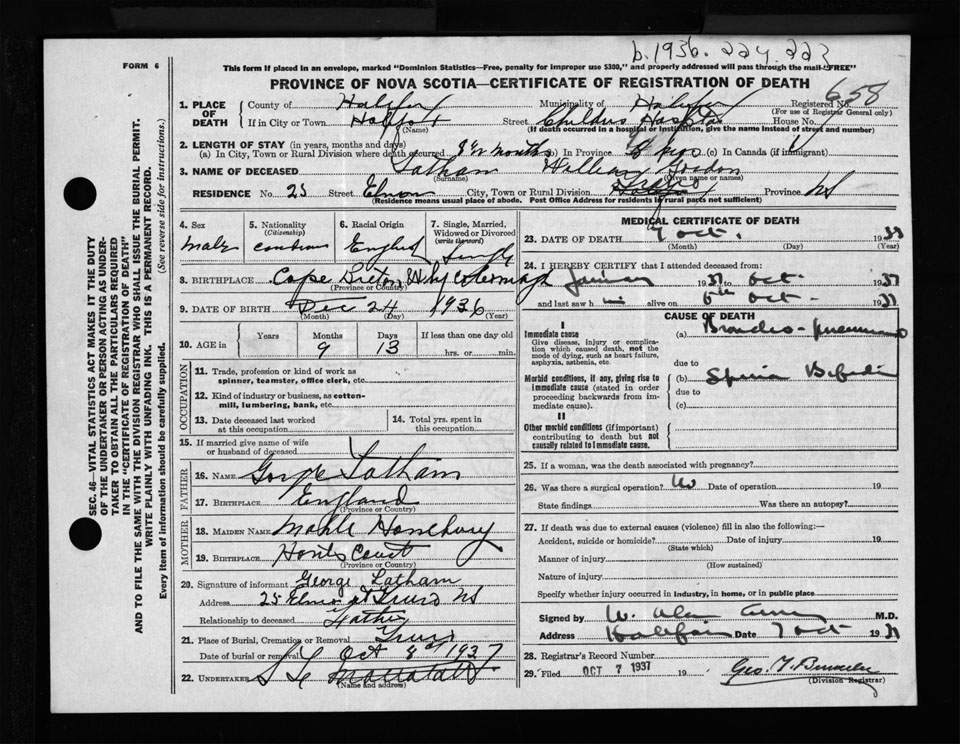 b.1936. 224.223
FORM 6
This form if placed in an envelope, marked "Dominion Statistics—Free, penalty for improper use $300," and properly addressed will pass through the mail "FREE"
PROVINCE OF NOVA SCOTIA—CERTIFICATE OF REGISTRATION OF DEATH
658
1. PLACE OF DEATH County of Halifax Municipality of Halifax Registered No.
(For use of Registrar General only)
If in City or Town Halifax Street House No.
(Name) (If death occurred in a hospital or institution, give the name instead of street and number)
2. LENGTH OF STAY (in years, months and days)
(a) In City, Town or Rural Division where death occurred months (b) In Province (c) In Canada (if immigrant)
3. NAME OF DECEASED Latham William Gordon
(Surname) (Given name or names)
RESIDENCE No. 25 Street City, Town or Rural Division Province NS
(Residence means usual place of abode. Post Office Address for residents in rural parts not sufficient)
4. Sex Male
5. Nationality (Citizenship)
6. Racial Origin English
7. Single, Married, Widowed or Divorced (write the word) Single
8. BIRTHPLACE Cape Breton
(Province or Country)
9. DATE OF BIRTH Dec 24 1936
(Month) (Day) (Year)
10. AGE in Years Months 9 Days 13 If less than one day old hrs. or min.
OCCUPATION
11. Trade, profession or kind of work as spinner, teamster, office clerk, etc.
12. Kind of industry or business, as cotton-mill, lumbering, bank, etc.
13. Date deceased last worked at this occupation
14. Total yrs. spent in this occupation
15. If married give name of wife or husband of deceased
FATHER
16. NAME George Latham
17. BIRTHPLACE England
(Province or Country)
MOTHER
18. MAIDEN NAME
19. BIRTHPLACE
(Province or Country)
20. Signature of informant George Latham
Address 25 Truro NS
Relationship to deceased Father
21. Place of Burial, Cremation or Removal Truro
Date of burial or removal Oct 8 1937
22. UNDERTAKER
(Name and address)
MEDICAL CERTIFICATE OF DEATH
23. DATE OF DEATH 7 Oct. 1937
(Month) (Day) (Year)
24. I HEREBY CERTIFY that I attended deceased from
1937 to Oct - 1937
and last saw h im alive on 6th Oct - 1937
CAUSE OF DEATH
I
Immediate cause
Give disease, injury or complication which caused death, not the mode of dying, such as heart failure, asphyxia, asthenia, etc.
(a) Broncho-pneumonia
due to
Morbid conditions, if any, giving rise to immediate cause (stated in order proceeding backwards from immediate cause).
(b) Spina Bifida
due to
(c)
II
Other morbid conditions (if important) contributing to death but not causally related to immediate cause.
25. If a woman, was the death associated with pregnancy?
26. Was there a surgical operation? No Date of operation 19
State findings Was there an autopsy?
27. If death was due to external causes (violence) fill in also the following:—
Accident, suicide or homicide? Date of injury 19
(State which)
Manner of injury
(How sustained)
Nature of injury
Specify whether injury occurred in industry, in home, or in public place
Signed by W. Alan M.D.
Address Halifax Date 7 Oct 1937
28. Registrar's Record Number
29. Filed OCT 7 1937 19
(Division Registrar)
SEC. 46—VITAL STATISTICS ACT MAKES IT THE DUTY
OF THE UNDERTAKER OR PERSON ACTING AS UNDER-
TAKER TO OBTAIN ALL THE PARTICULARS REQUIRED
IN THE "CERTIFICATE OF REGISTRATION OF DEATH"
AND TO FILE THE SAME WITH THE DIVISION REGISTRAR WHO SHALL ISSUE THE BURIAL PERMIT.
WRITE PLAINLY WITH UNFADING INK. THIS IS A PERMANENT RECORD.
Every item of information should be carefully supplied. (See reverse side for instructions.)